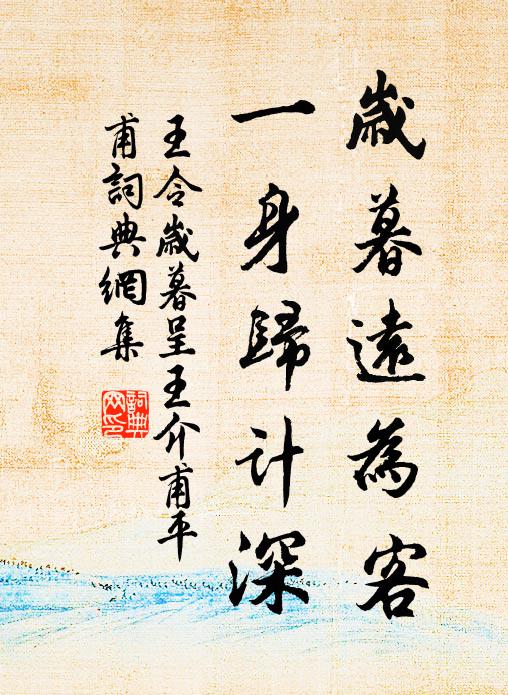 歲暮遠為客
一身歸計深
王令歲暮呈王介甫平
甫詞典網集
詞典
网印